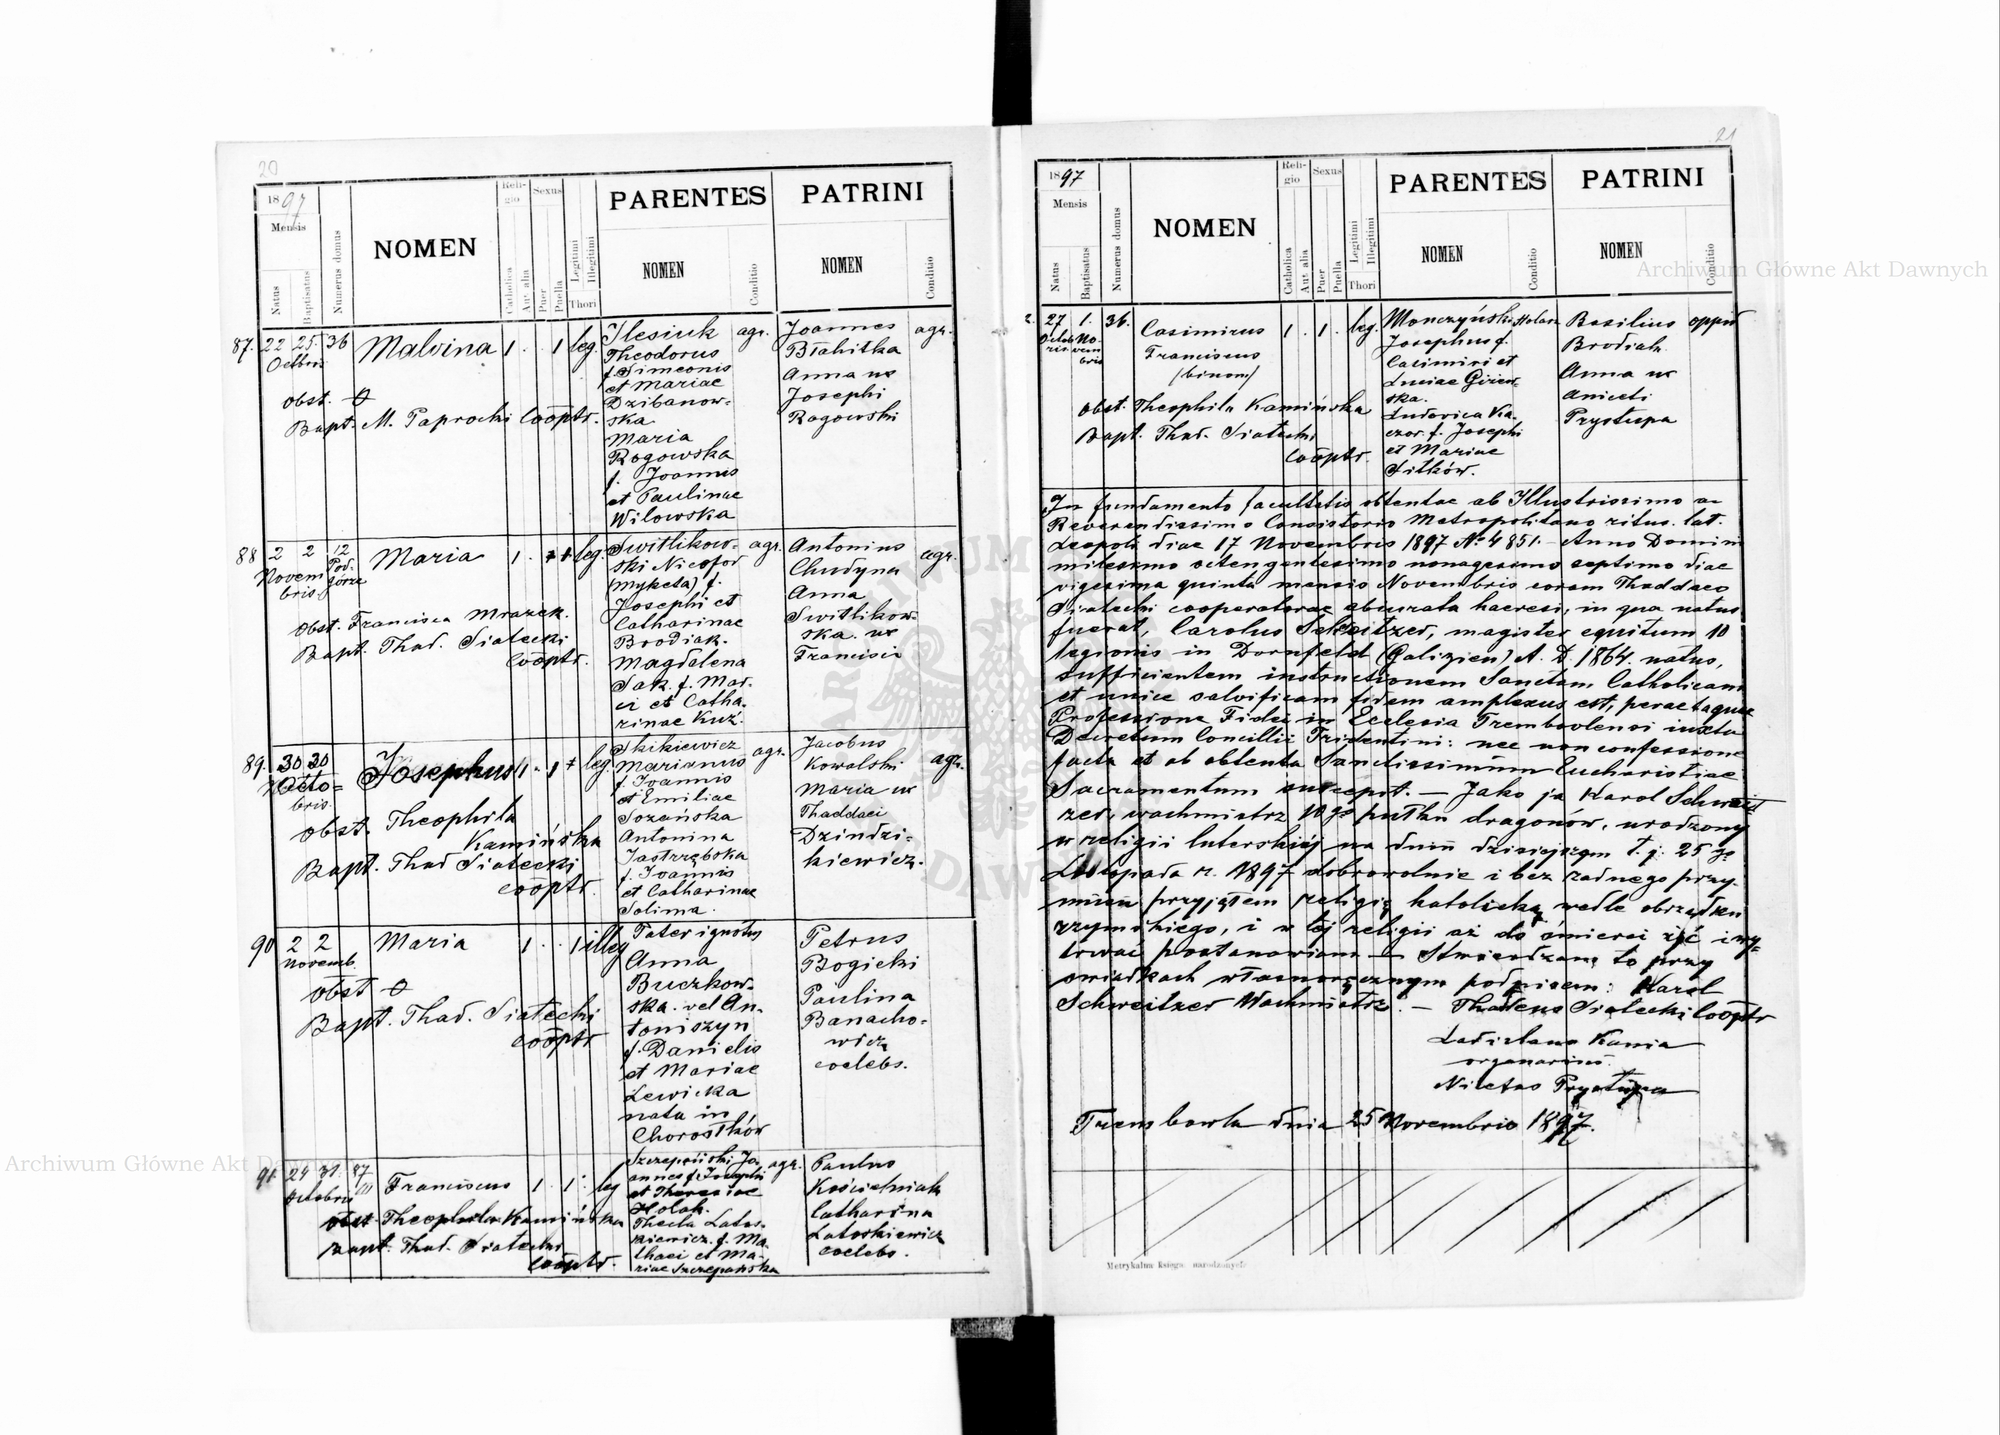 20
1897
Mensis
Natus
Baptisatus
Numerus domus
NOMEN
Religio
Catholica
Aut alia
Sexus
Puer
Puella
Legitimi
Illegitimi
Thori
PARENTES
NOMEN
Conditio
PATRINI
NOMEN
Conditio
87. 22 25. 36 Malvina 1. 1 leg.
Octbris
obst. O
Bapt. M. Paprocki Cooptr.
Ilesiuk agr.
Theodorus
f. Simeonis
et Mariae
Dzibanow-
ska
Maria
Rogowska
f. Joannis
et Paulinae
Wilowska
Joannes agr.
Białkitka
Anna ux
Josephi
Rogowski
88 2 2 12 Maria 1. 1 leg.
Novem Pod-
bris górze
Obst. Francisca Mrazek.
Bapt. Thad. Siatecki
Cooptr.
Switlikow- agr.
ski Nicefor
(Myketa) f.
Josephi et
Catharinae
Brodiak.
Magdalena
Sak. f. Mar-
ci et Catha-
rinae Kuź.
Antonius agr.
Chudyna
Anna
Switlikow-
ska. ux
Francisci
89. 30 30 Josephus 1. 1 leg.
Octo-
bris.
obst. Theophila
Kamińska
Bapt. Thad Siatecki
cooptr.
Skikiewicz agr.
Marianus
f. Joannis
et Emiliae
Sozańska
Antonina
Jastrzębska
f. Joannis
et Catharinae
Solima.
Jacobus agr.
Kowalski
Maria ux
Thaddaei
Dzindzi-
kiewicz.
90 2 2 Maria 1. 1 illeg
Novemb.
obst O
Bapt. Thad. Siatecki
cooptr
Pater ignotus
Anna
Buczkow-
ska. vel An-
toniszyn
f. Danielis
et Mariae
Lewicka
nata in
Chorostków
Petrus
Bogicki
Paulina
Banacho-
wicz
coelebs.
91. 29 31. 87 Franciscus 1. 1. leg
Octobris
obst. Theophila Kamińska
Bapt. Thad. Siatecki
Cooptr.
Szczepański Jo- agr.
annes f. Josephi
et Theresiae
Holak.
Thecla Latos-
kiewicz. f. Ma-
thaei et Ma-
riae Szczepańska
Paulus
Kościelniak
Catharina
Latoskiewicz
coelebs.
21
1897
Mensis
Natus
Baptisatus
Numerus domus
NOMEN
Religio
Catholica
Aut alia
Sexus
Puer
Puella
Legitimi
Illegitimi
Thori
PARENTES
NOMEN
Conditio
PATRINI
NOMEN
Conditio
2. 27 1. 36. Casimirus 1. 1. leg.
Octob No-
ris vem
bris
Franciscus
/binom/
obst. Theophila Kamińska
Bapt. Thad. Siatecki
Cooptr.
Monczyński
Josephus f.
Casimiri et
Luciae Giżew-
ska.
Ludovica Ka-
czor. f. Josephi
et Mariae
Sitków.
Basilius oppid
Brodiak
Anna ux
Aniceti
Prystupa
In fundamento facultatis obtentae ab Illustrissimo ac
Reverendissimo Consistorio Metropolitano ritus. lat.
Leopoli diae 17 Novembris 1897 No 4851. – Anno Domini
milesimo octengentesimo nonagesimo septimo diae
vigesima quinta mensis Novembris coram Thaddaeo
Siatecki cooperatorae abiurata haeresi, in qua natus
fuerat, Carolus Schweitzer, magister equitum 10
legionis in Dornfeld (Galizien) A. D. 1864. natus,
sufficientem instructionem Sanctam Catholicam
et unice salvificam fidem amplexus est, peractaque
Professione Fidei in Ecclesia Trembovlensi iuxta
Decretum Concillii Tridentini: nec non confessione
facta et ab obtenta Sanctissimum Eucharistiae
Sacramentum suscepit. – Jako ja Karol Schweit-
zer, wachmistrz 10go pułku dragonów, urodzony
w religii luterskiéj na dniu dzisiejszym t. j. 25 go
Listopada r. 1897 dobrowolnie i bez żadnego przy-
musu przyjąłem religię katolicką wedle obrządku
rzymskiego, i w téj religii aż do śmierci żyć i wy-
trwać postanawiam – Stwierdzam to przy
swiadkach własnoręcznym podpisem: Karol
Schweitzer Wachmistrz. – Thadeus Siatecki Cooptr
Ladislaus Kania
organarius
Nicetas Prystupa
Trembowla dnia 25 Novembris 1897.
Metrykalna Księga narodzonych
Archiwum Główne Akt Dawnych
Archiwum Główne Akt Dawnych
ARCHIWUM
AKT DAWNYCH